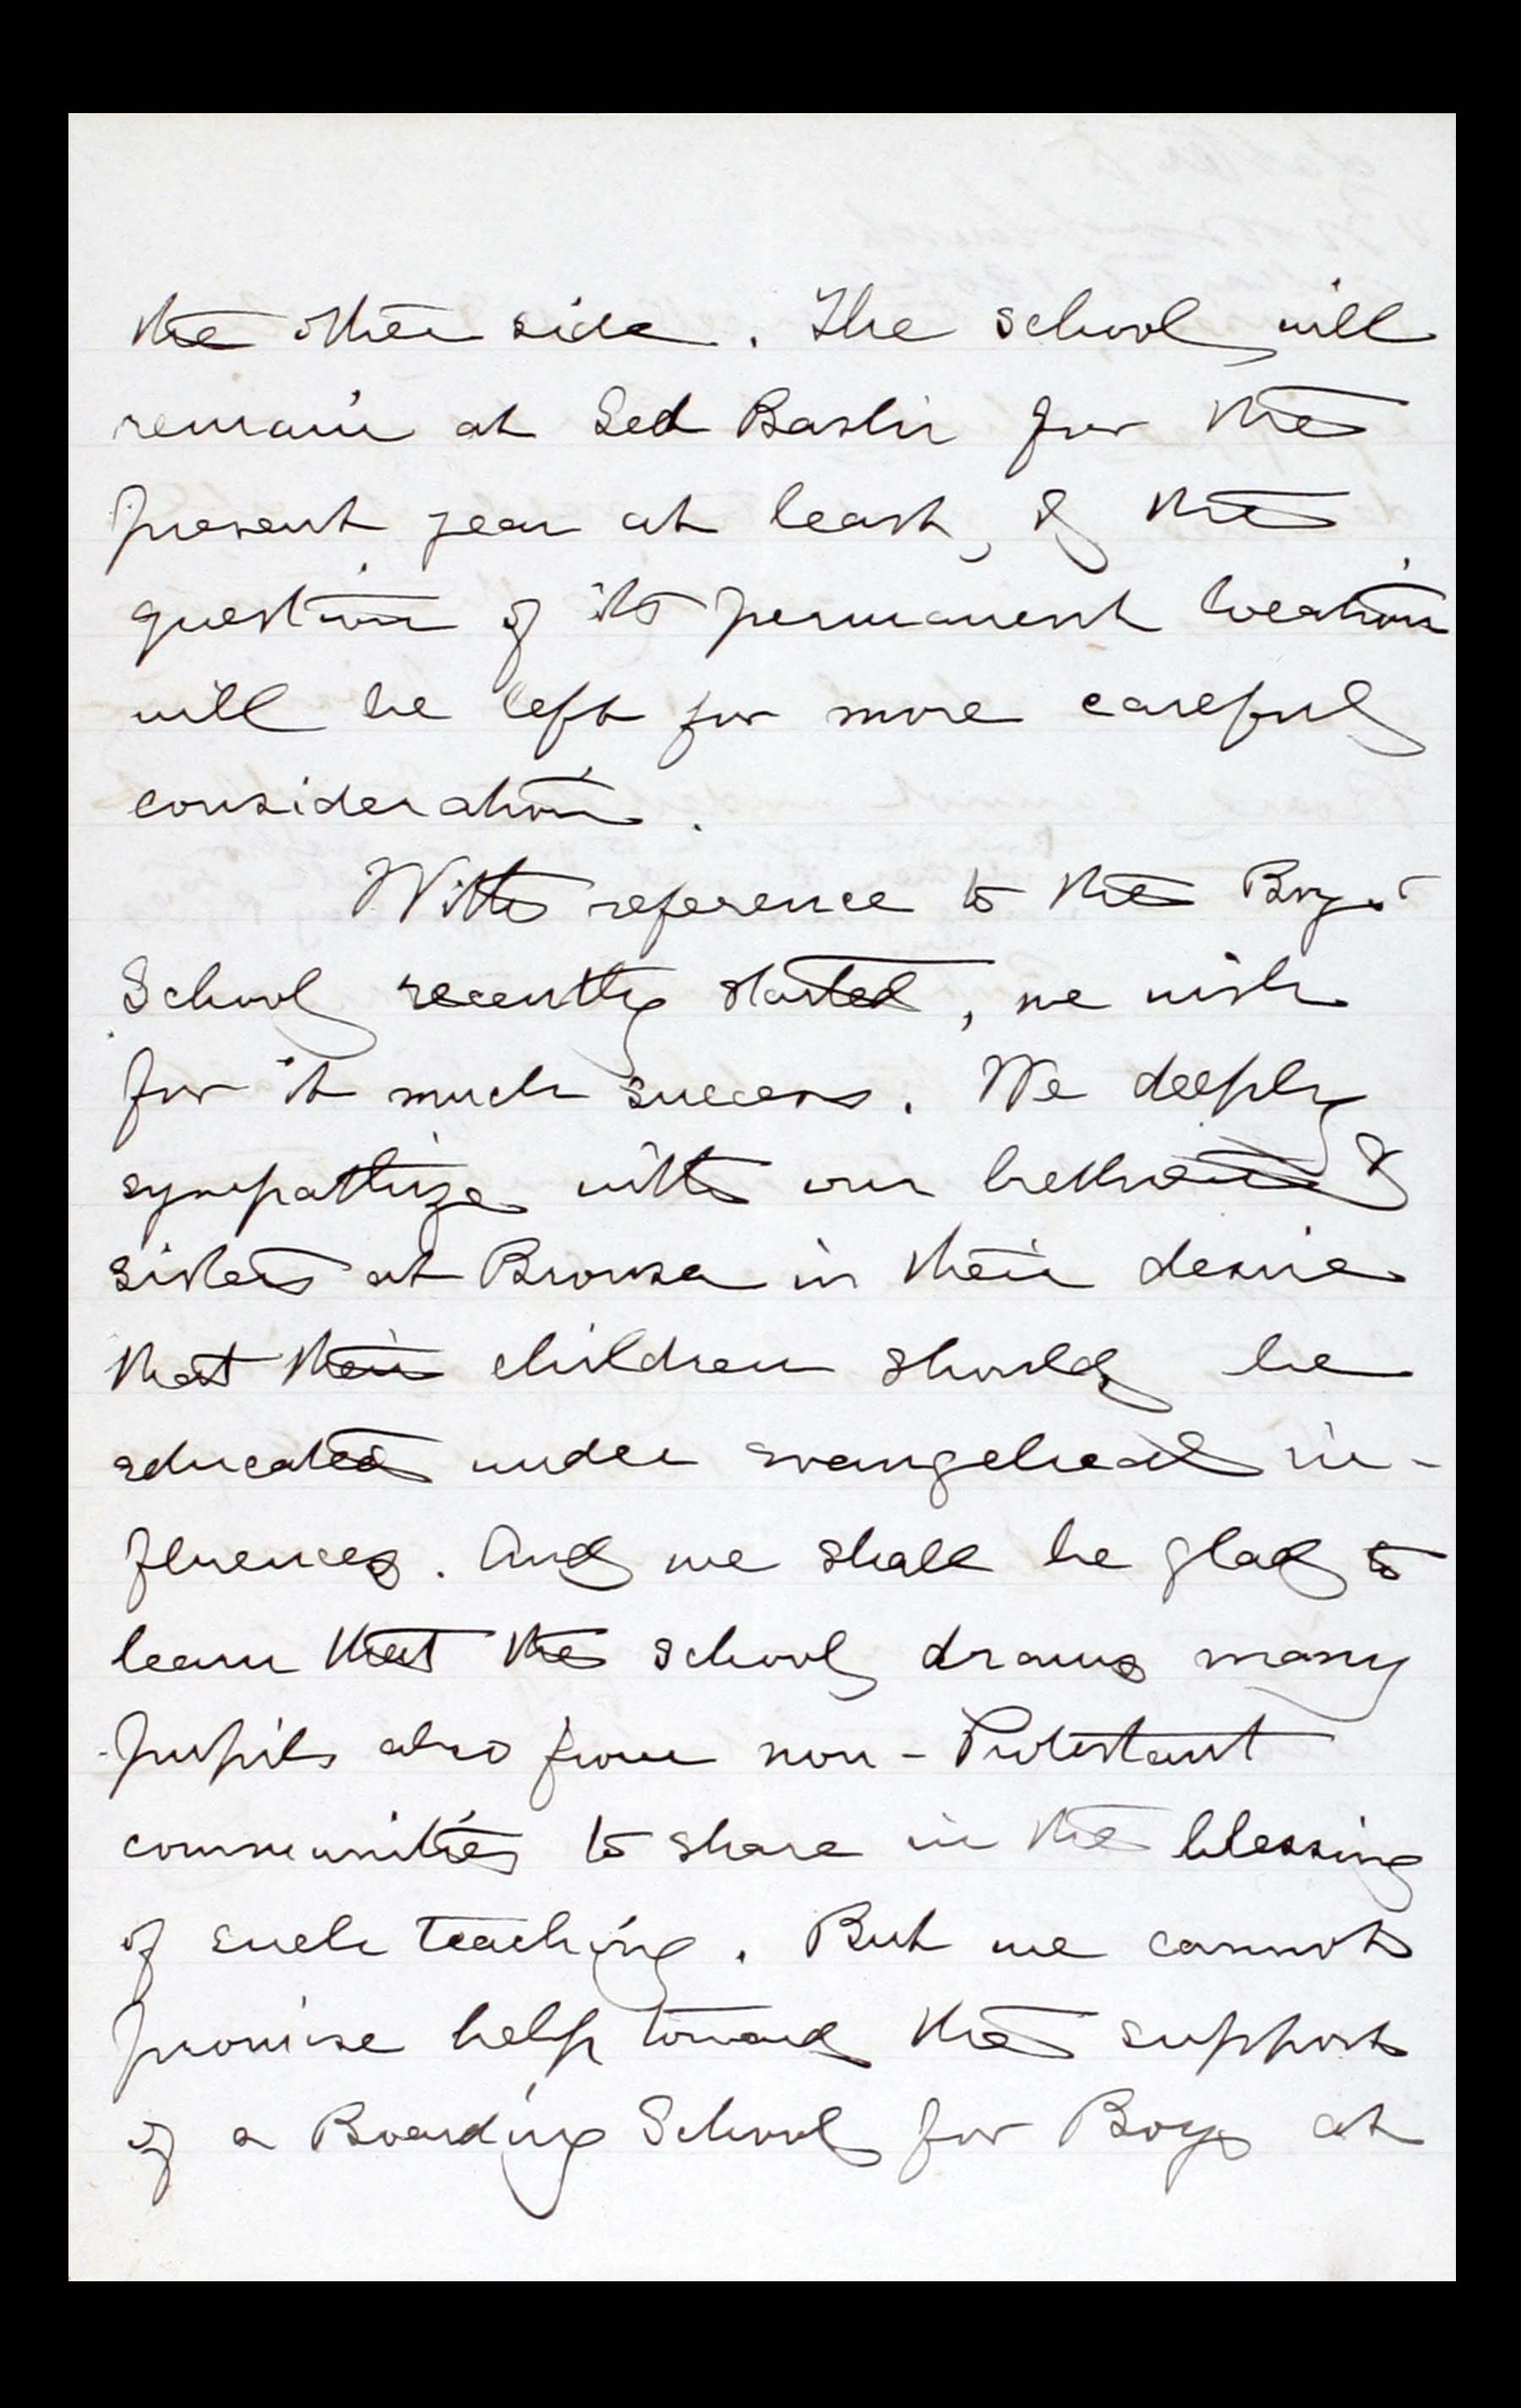 the other side. The school will
remain at Sed Bashi for the
present year at least, & the
question of its permanent location
will be left for more careful
consideration.
With reference to the Boys'
School recently started, we wish
for it much success. We deeply
sympathize with our brethren &
sisters at Brousa in their desire
that their children should be
educated under evangelical in-
fluences. And we shall be glad to
learn that the school draws many
pupils also from non-Protestant
communities to share in the blessing
of such teaching. But we cannot
promise help toward the support
of a Boarding School for Boys at